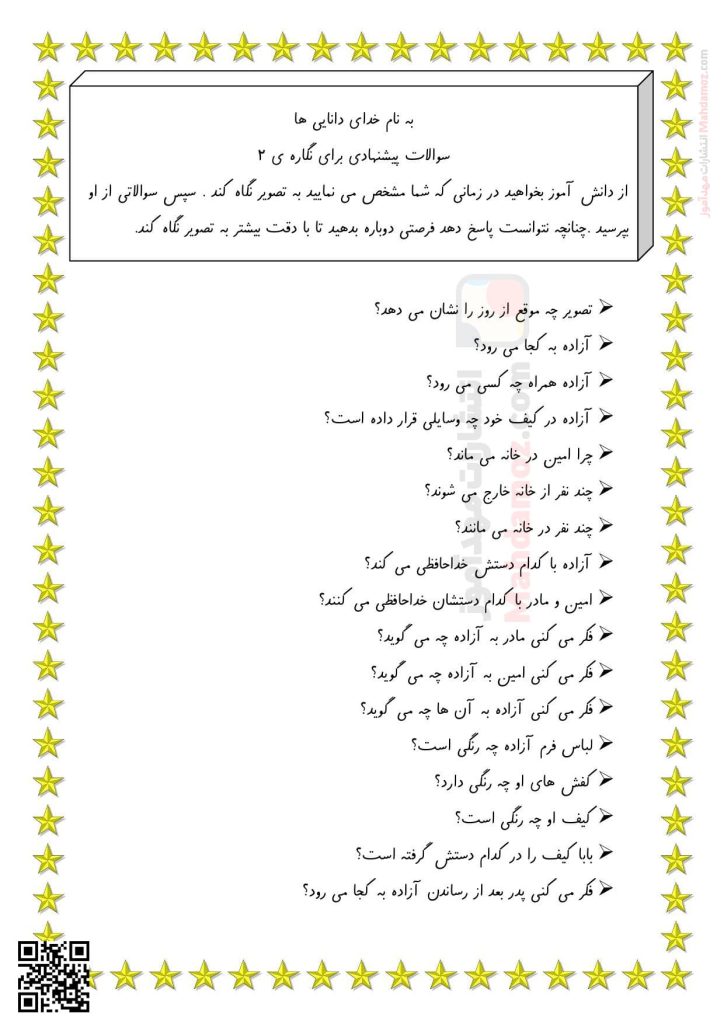 به نام خدای دانایی ها
سوالات پیشنهادی برای نگاره ی ۲
از دانش آموز بخواهید در زمانی که شما مشخص می نمایید به تصویر نگاه کند . سپس سوالاتی از او
بپرسید .چنانچه نتوانست پاسخ دهد فرصتی دوباره بدهید تا با دقت بیشتر به تصویر نگاه کند.
تصویر چه موقع از روز را نشان می دهد؟
آزاده به کجا می رود؟
آزاده همراه چه کسی می رود؟
آزاده در کیف خود چه وسایلی قرار داده است؟
چرا امین در خانه می ماند؟
چند نفر از خانه خارج می شوند؟
چند نفر در خانه می مانند؟
آزاده با کدام دستش خداحافظی می کند؟
امین و مادر با کدام دستشان خداحافظی می کنند؟
فکر می کنی مادر به آزاده چه می گوید؟
فکر می کنی امین به آزاده چه می گوید؟
فکر می کنی آزاده به آن ها چه می گوید؟
لباس فرم آزاده چه رنگی است؟
کفش های او چه رنگی دارد؟
کیف او چه رنگی است؟
بابا کیف را در کدام دستش گرفته است؟
فکر می کنی پدر بعد از رساندن آزاده به کجا می رود؟
انتشارات مهدآموز Mahdamoz.com
انتشارات مهدآموز
Mahdamoz.com